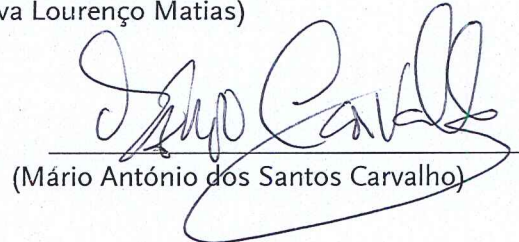 va Lourenço Matias)
Carvalho
(Mário António dos Santos Carvalho)